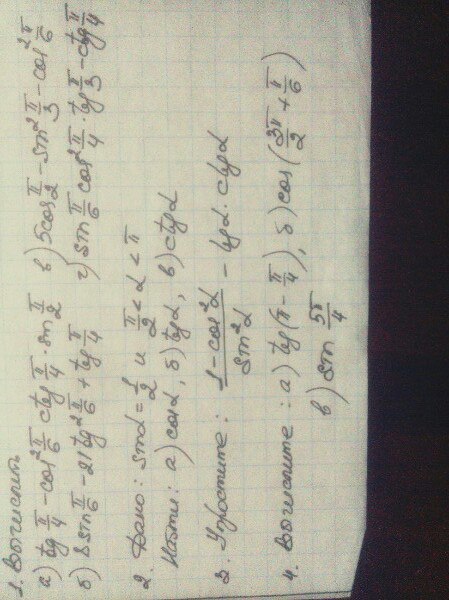 1. Вычислить
а) tg π/4 - cos² π/6 ctg π/4 · sin π/2 в) 5cos π/2 - sin² π/3 - cos² π/6
б) 8sin π/6 - 21tg² π/6 + tg π/4 г) sin π/6 cos² π/4 · tg π/3 - ctg π/4
2. Дано: sinα = 1/2 и π/2 < α < π
Найти: а) cosα, б) tgα, в) ctgα
3. Упростите: (1 - cos²α)/(sin²α) - tgα · ctgα
4. Вычислите: а) tg(π - π/4), б) cos(3π/2 + π/6)
в) sin 5π/4